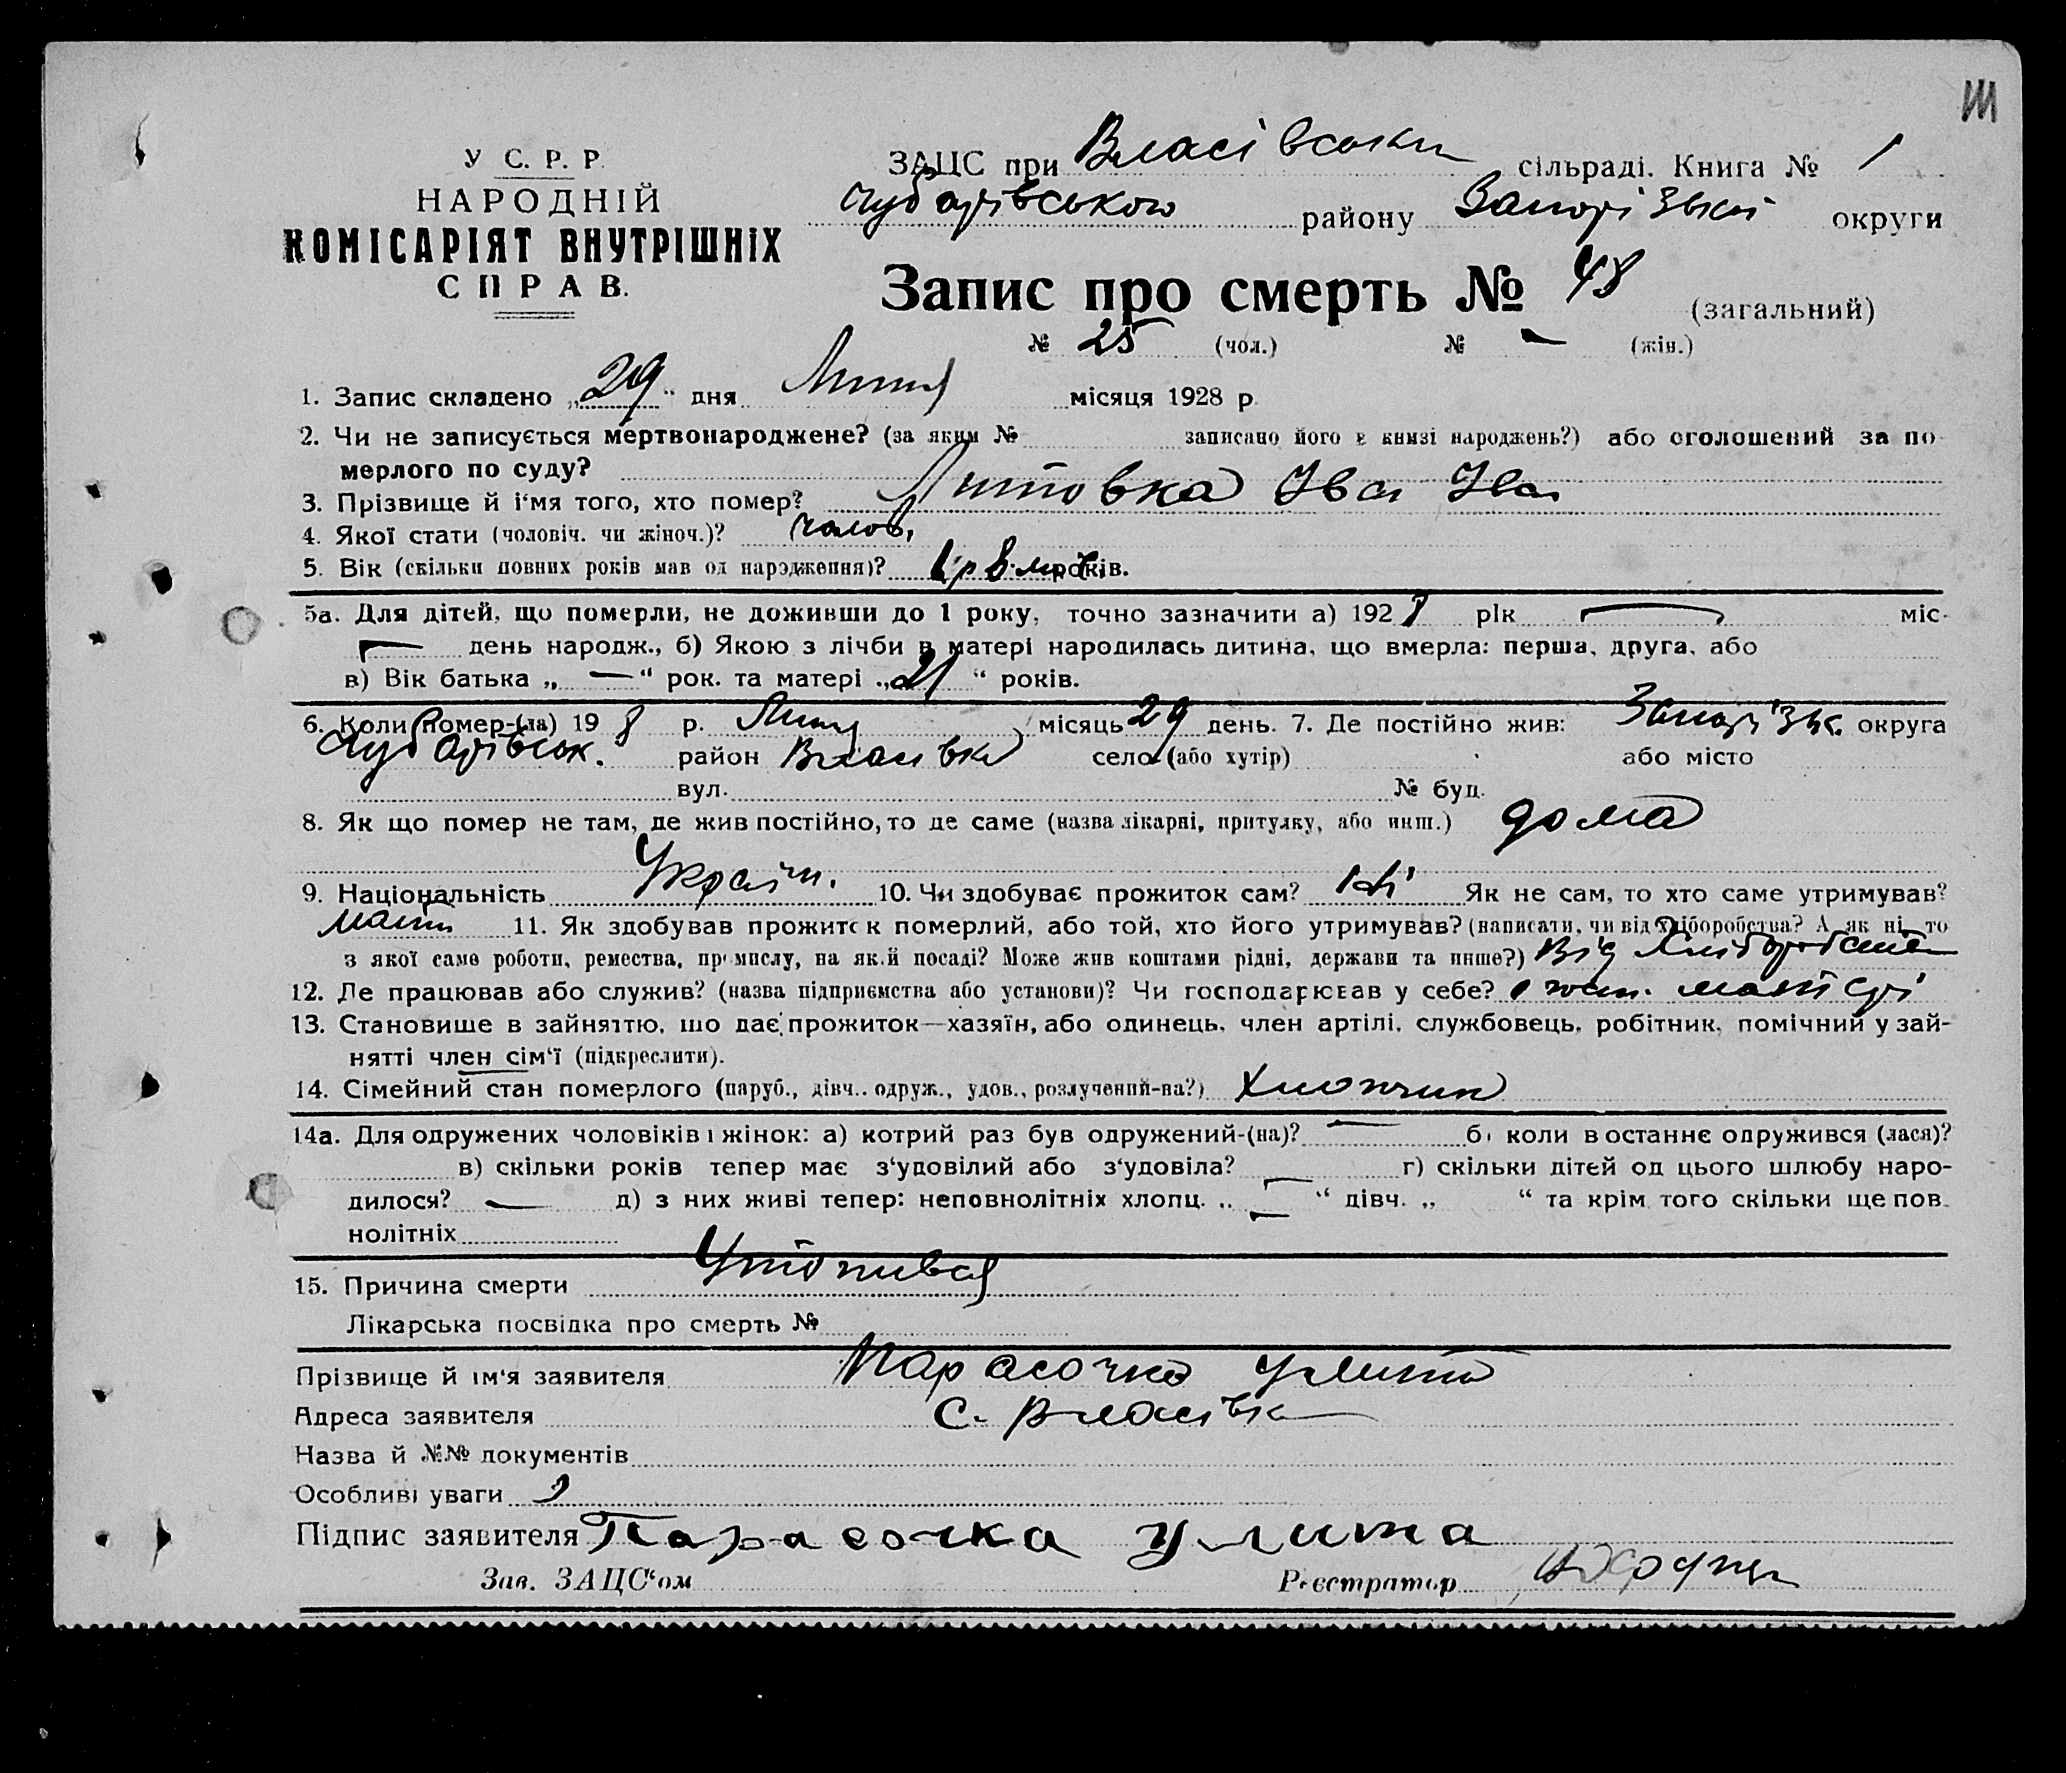 Ш
У С. Р. Р.
НАРОДНІЙ
КОМІСАРІЯТ ВНУТРІШНІХ
СПРАВ.
ЗАЦС при Власівськи сільраді. Книга № 1
Чубарівського району Запорізькі округи
Запис про смерть № 48 (загальний)
№ 25 (чол.) № — (жін.)
1. Запис складено „29“ дня Липня місяця 1928 р.
2. Чи не записується мертвонароджене? (за яким № записано його в книзі народжень?) або оголошений за по-
мерлого по суду?
3. Прізвище й і'мя того, хто помер? Литовка Іван Іван
4. Якої стати (чоловіч. чи жіноч.)? чолов.
5. Вік (скільки повних років мав од народження)? 1 р 8 років.
5а. Для дітей, що померли, не доживши до 1 року, точно зазначити а) 1928 рік — міс-
— день народж., б) Якою з лічби в матері народилась дитина, що вмерла: перша, друга, або
в) Вік батька „—“ рок. та матері „21“ років.
6. Коли помер-(ла) 19 8 р. Липня місяць 29 день. 7. Де постійно жив: Запорізьк. округа
Чубарівськ. район Власівка село (або хутір) або місто
вул. № буд.
8. Як що помер не там, де жив постійно, то де саме (назва лікарні, притулку, або инш.) дома
9. Національність Україн. 10. Чи здобуває прожиток сам? ні Як не сам, то хто саме утримував?
мати 11. Як здобував прожиток померлий, або той, хто його утримував? (написати, чи від хліборобства? А як ні, то
з якої саме роботи, ремества, промислу, на якій посаді? Може жив коштами рідні, держави та инше?) Від хліборобства
12. Де працював або служив? (назва підприємства або установи)? Чи господарював у себе? госп. матері
13. Становище в зайняттю, що дає прожиток—хазяїн, або одинець, член артілі, службовець, робітник, помічний у зай-
нятті член сім'ї (підкреслити).
14. Сімейний стан померлого (паруб., дівч., одруж., удов., розлучений-на?) хлопчик
14а. Для одружених чоловіків і жінок: а) котрий раз був одружений-(на)? — б) коли в останнє одружився (лася)?
в) скільки років тепер має з'удовілий або з'удовіла? г) скільки дітей од цього шлюбу наро-
дилося? — д) з них живі тепер: неповнолітніх хлопц. „—“ дівч. „ “ та крім того скільки ще пов-
нолітніх
15. Причина смерти Утопився
Лікарська посвідка про смерть №
Прізвище й ім'я заявителя Парасочка Улита
Адреса заявителя с. Власівка
Назва й №№ документів
Особливі уваги
Підпис заявителя Парасочка Улита
Зав. ЗАЦС'ом Реєстратор